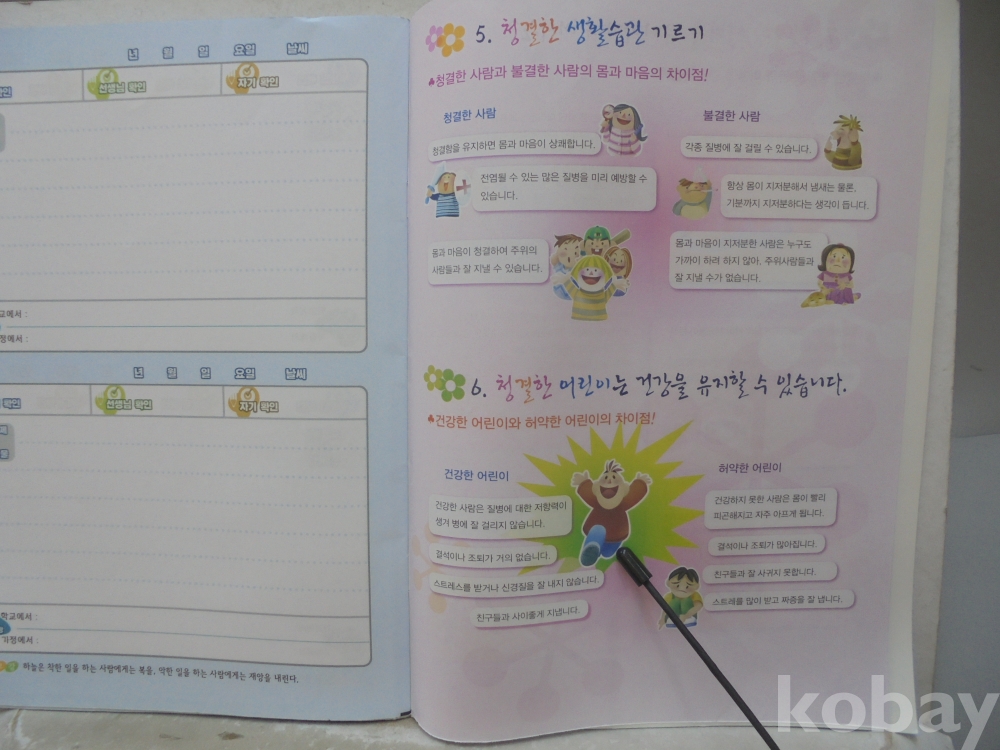 년 월 일 요일 날씨
확인
선생님 확인
자기 확인
교에서 :
정에서 :
년 월 일 요일 날씨
확인
선생님 확인
자기 확인
학교에서 :
가정에서 :
하늘은 착한 일을 하는 사람에게는 복을, 악한 일을 하는 사람에게는 재앙을 내린다.
5. 청결한 생활습관 기르기
♣청결한 사람과 불결한 사람의 몸과 마음의 차이점!
청결한 사람
청결함을 유지하면 몸과 마음이 상쾌합니다.
전염될 수 있는 많은 질병을 미리 예방할 수
있습니다.
몸과 마음이 청결하여 주위의
사람들과 잘 지낼 수 있습니다.
불결한 사람
각종 질병에 잘 걸릴 수 있습니다.
항상 몸이 지저분해서 냄새는 물론,
기분까지 지저분하다는 생각이 듭니다.
몸과 마음이 지저분한 사람은 누구도
가까이 하려 하지 않아, 주위사람들과
잘 지낼 수가 없습니다.
6. 청결한 어린이는 건강을 유지할 수 있습니다.
♣건강한 어린이와 허약한 어린이의 차이점!
건강한 어린이
건강한 사람은 질병에 대한 저항력이
생겨 병에 잘 걸리지 않습니다.
결석이나 조퇴가 거의 없습니다.
스트레스를 받거나 신경질을 잘 내지 않습니다.
친구들과 사이좋게 지냅니다.
허약한 어린이
건강하지 못한 사람은 몸이 빨리
피곤해지고 자주 아프게 됩니다.
결석이나 조퇴가 많아집니다.
친구들과 잘 사귀지 못합니다.
스트레를 많이 받고 짜증을 잘 냅니다.
kobay